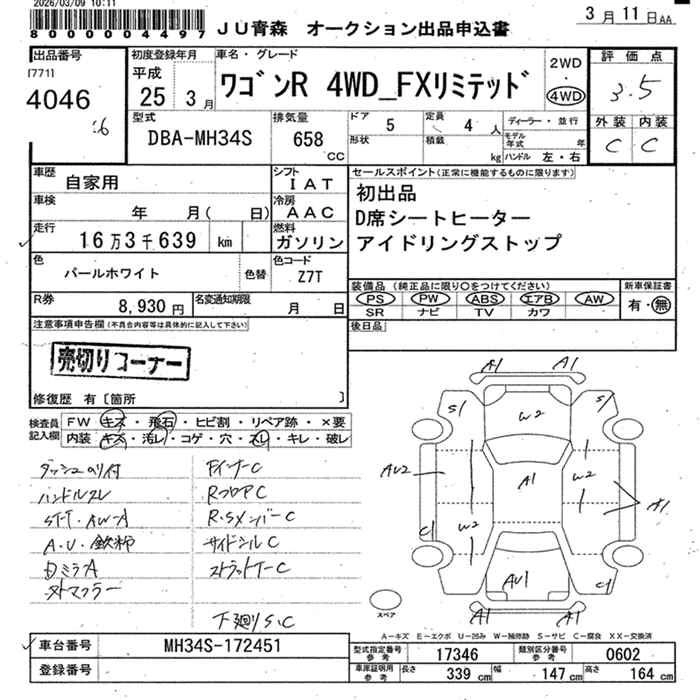 2026/03/09 10:11
80000004497
JU青森 オークション出品申込書
3月11日AA
出品番号
[771]
4046
初度登録年月
平成
25 3月
車名・グレード
ワゴンR 4WD_FXリミテッド
2WD
・
4WD
評価点
3.5
外装 内装
C C
型式
DBA-MH34S
排気量
658
CC
ドア 5
形状
定員 4 人
積載 kg
ディーラー・並行
モデル年式 年
ハンドル 左・右
車歴
自家用
シフト
IAT
車検
年 月( 日)
冷房
AAC
走行
16万3千639 km
燃料
ガソリン
色
パールホワイト
色替
色コード
Z7T
R券
8,930円
名変通知期限
月 日
セールスポイント(正常に機能するものに限ります)
初出品
D席シートヒーター
アイドリングストップ
装備品(純正品に限り○をつけてください)
PS PW ABS エアB AW
SR ナビ TV カワ
新車保証書
有・無
後日品
注意事項申告欄(不具合内容等は具体的に記入して下さい)
売切りコーナー
修復歴 有〔箇所 〕
検査員
記入欄
FW キズ・飛石・ヒビ割・リペア跡・×要
内装 キズ・汚レ・コゲ・穴・スレ・キレ・破レ
ハンドルスレ
FインナーC
RフロアC
R・SメンバーC
サイドシルC
ストラットケーC
下廻りS・C
A1 A1
S1 S1
W2
AU2
W2
A1
W2
A1
C1
AU1
C1
A1 A1
スペア
A-キズ E-エクボ U-凹み W-補修跡 S-サビ C-腐食 XX-交換済
車台番号
MH34S-172451
登録番号
型式指定番号
参考
17346
類別区分番号
参考
0602
車庫証明用
参考
長さ 339 cm
幅 147 cm
高さ 164 cm